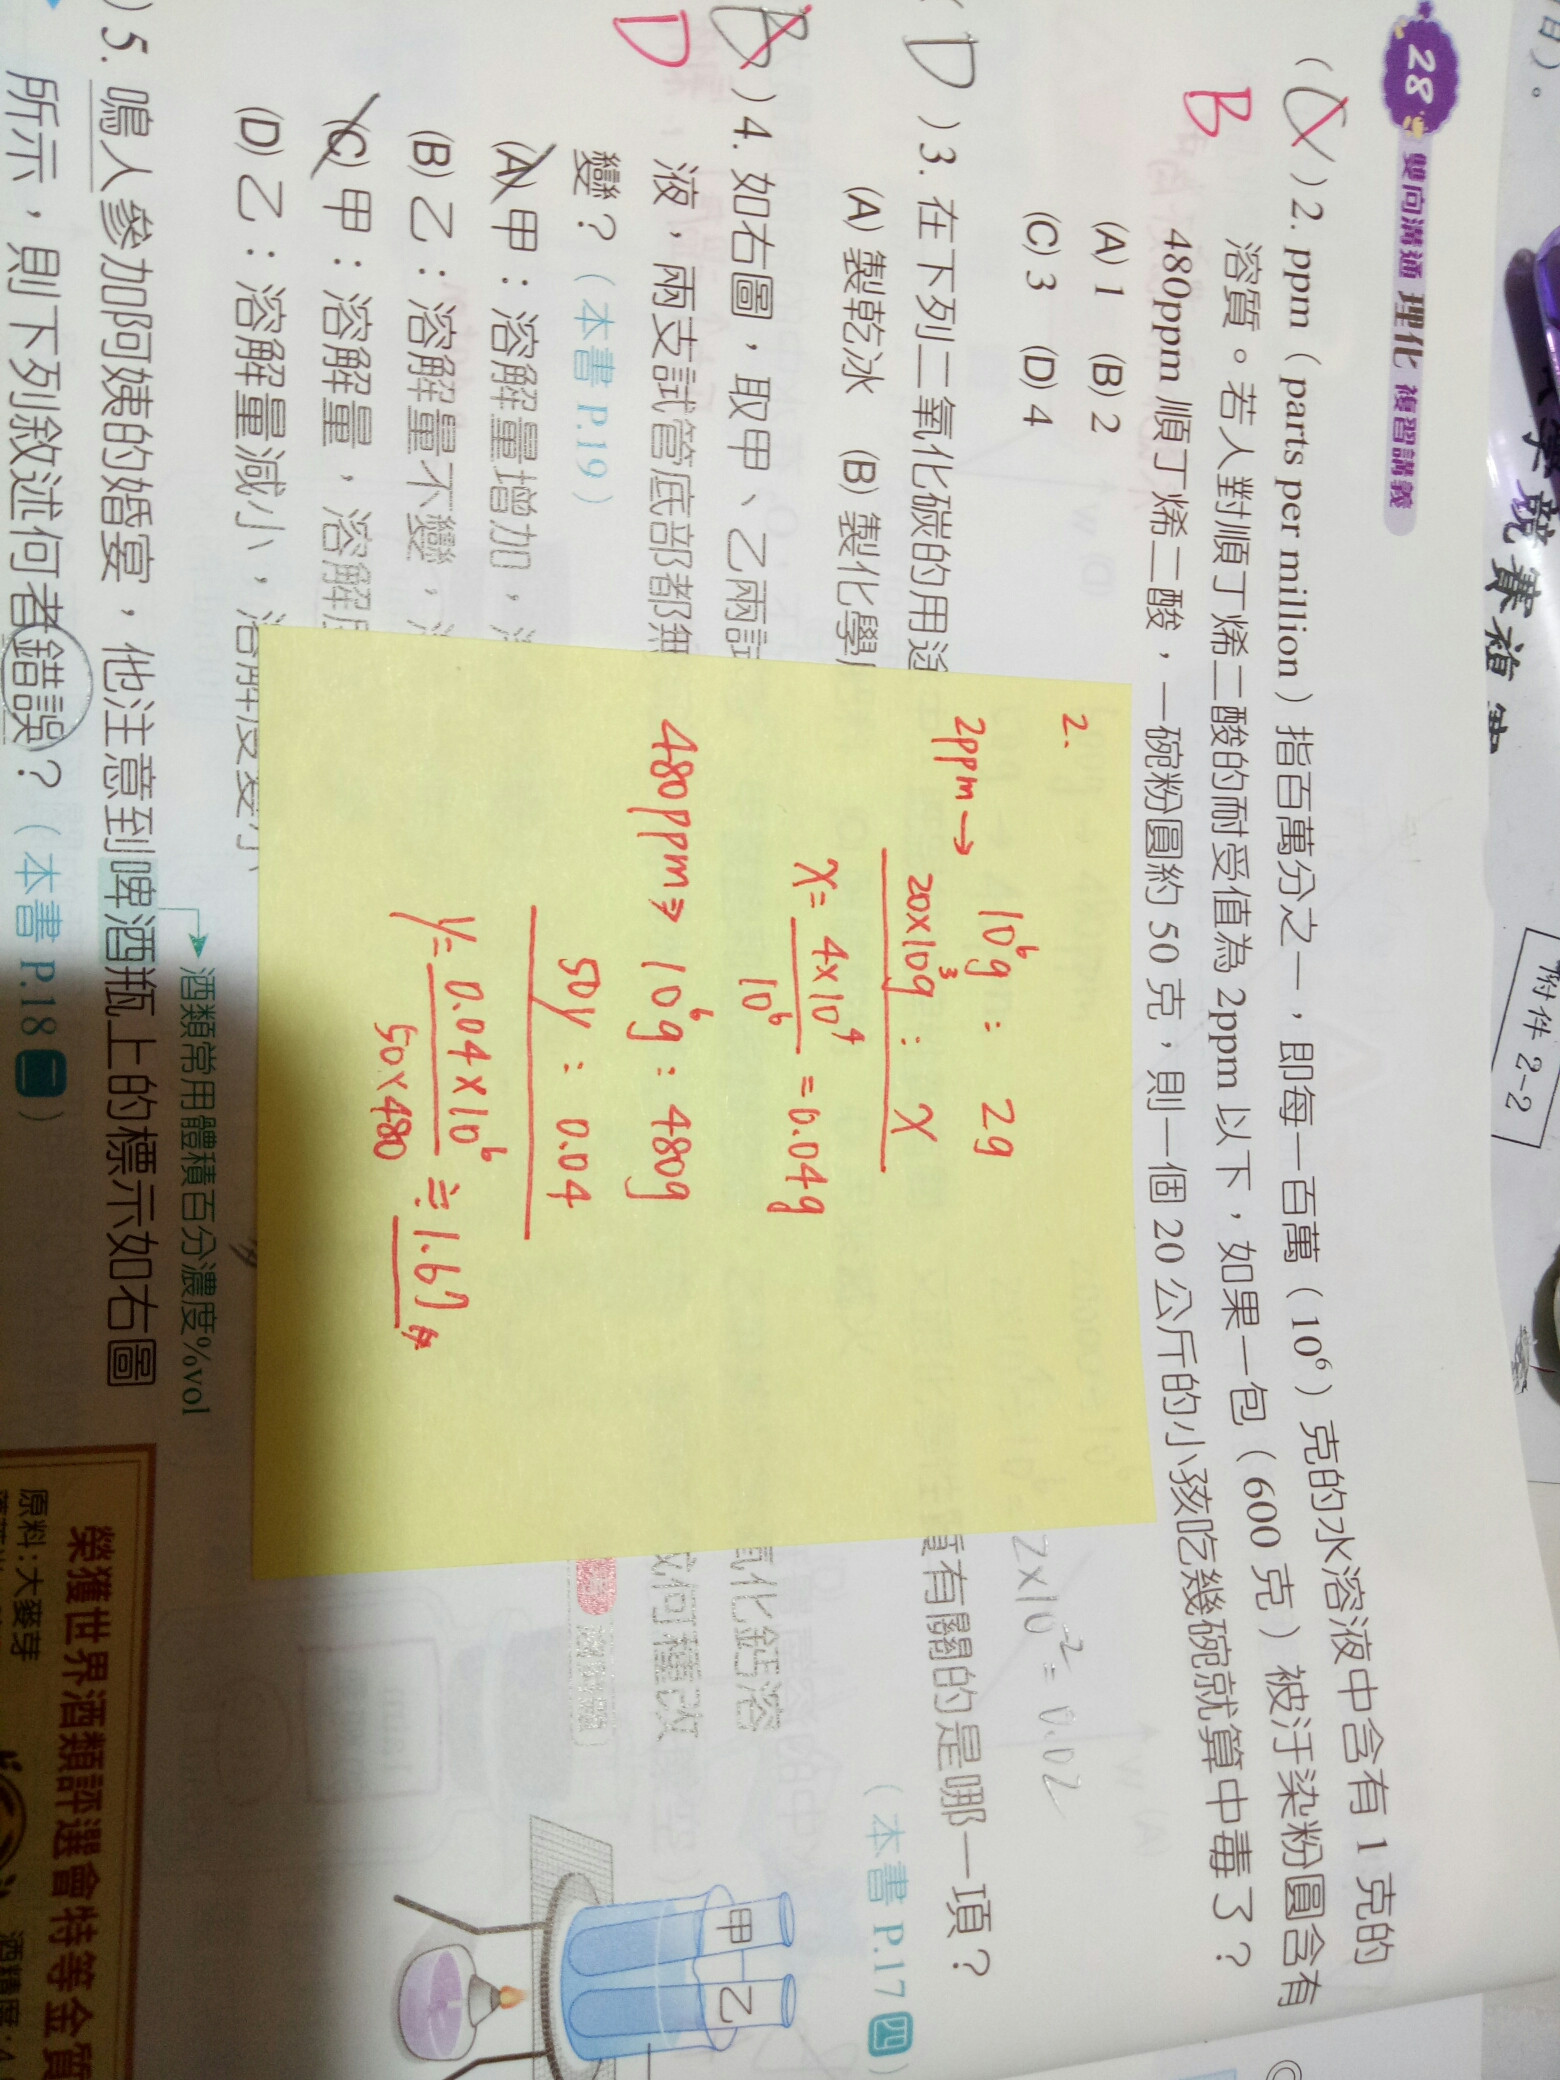 附件 2-2
28 雙向溝通 理化 複習講義
2. ppm（parts per million）指百萬分之一，即每一百萬（10⁶）克的水溶液中含有 1 克的
溶質。若人對順丁烯二酸的耐受值為 2ppm 以下，如果一包（600 克）被汙染粉圓含有
B
480ppm 順丁烯二酸，一碗粉圓約 50 克，則一個 20 公斤的小孩吃幾碗就算中毒了？
(A) 1 (B) 2
(C) 3 (D) 4
2×10⁻² = 0.02
( D ) 3. 在下列二氧化碳的用途 質有關的是哪一項？
(A) 製乾冰 (B) 製化學 （本書 P.17 四）
) 4. 如右圖，取甲、乙兩試 氧化鈣溶
D
液，兩支試管底部都無 何種改
變？（本書 P.19）
(A) 甲：溶解量增加，
(B) 乙：溶解量不變，
(C) 甲：溶解量，溶解度
(D) 乙：溶解量減小，溶解度變小
甲 乙
2.
2ppm → 10⁶g : 2g
20×10³g : x
x = 4×10⁴ / 10⁶ = 0.04g
480ppm ⇒ 10⁶g : 480g
50y : 0.04
y = 0.04×10⁶ / 50×480 ≒ 1.67
酒類常用體積百分濃度%vol
) 5. 鳴人參加阿姨的婚宴，他注意到啤酒瓶上的標示如右圖
所示，則下列敘述何者錯誤？（本書 P.18 二）
榮獲世界酒類評選會特等金質
原料:大麥芽